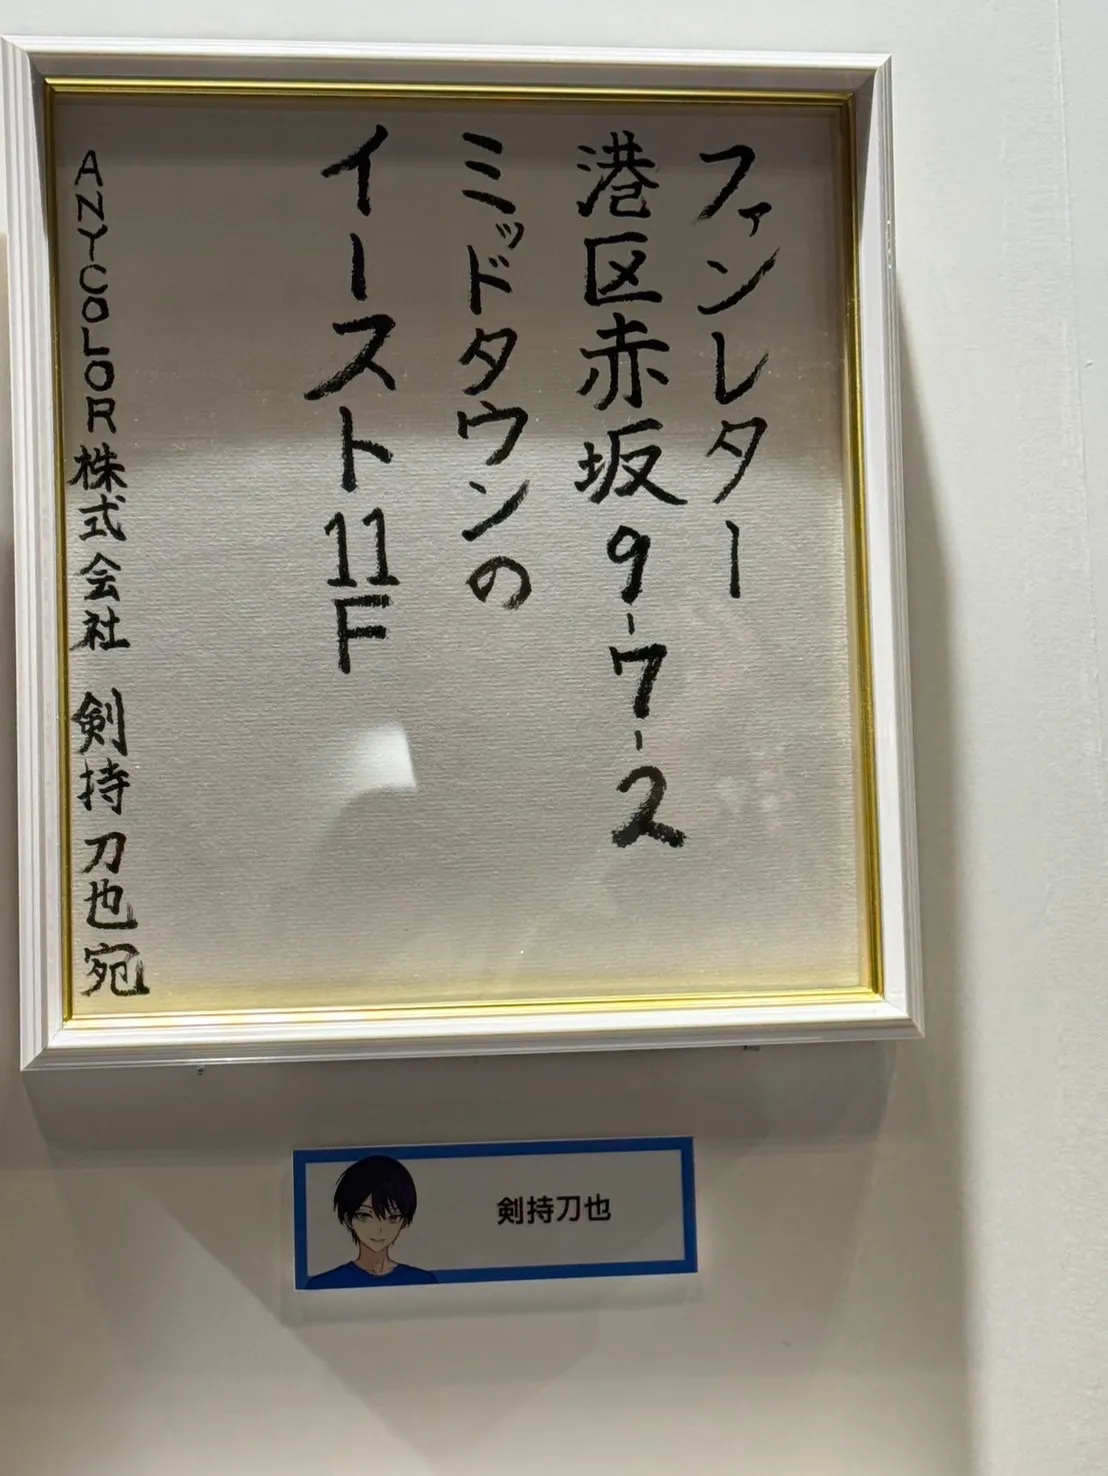 ファンレター
港区赤坂9-7-2
ミッドタウンの
イースト11F
ANYCOLOR株式会社 剣持刀也宛
剣持刀也